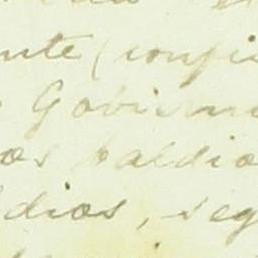 nte (confi
Gobierno
os baldio
dios, seg